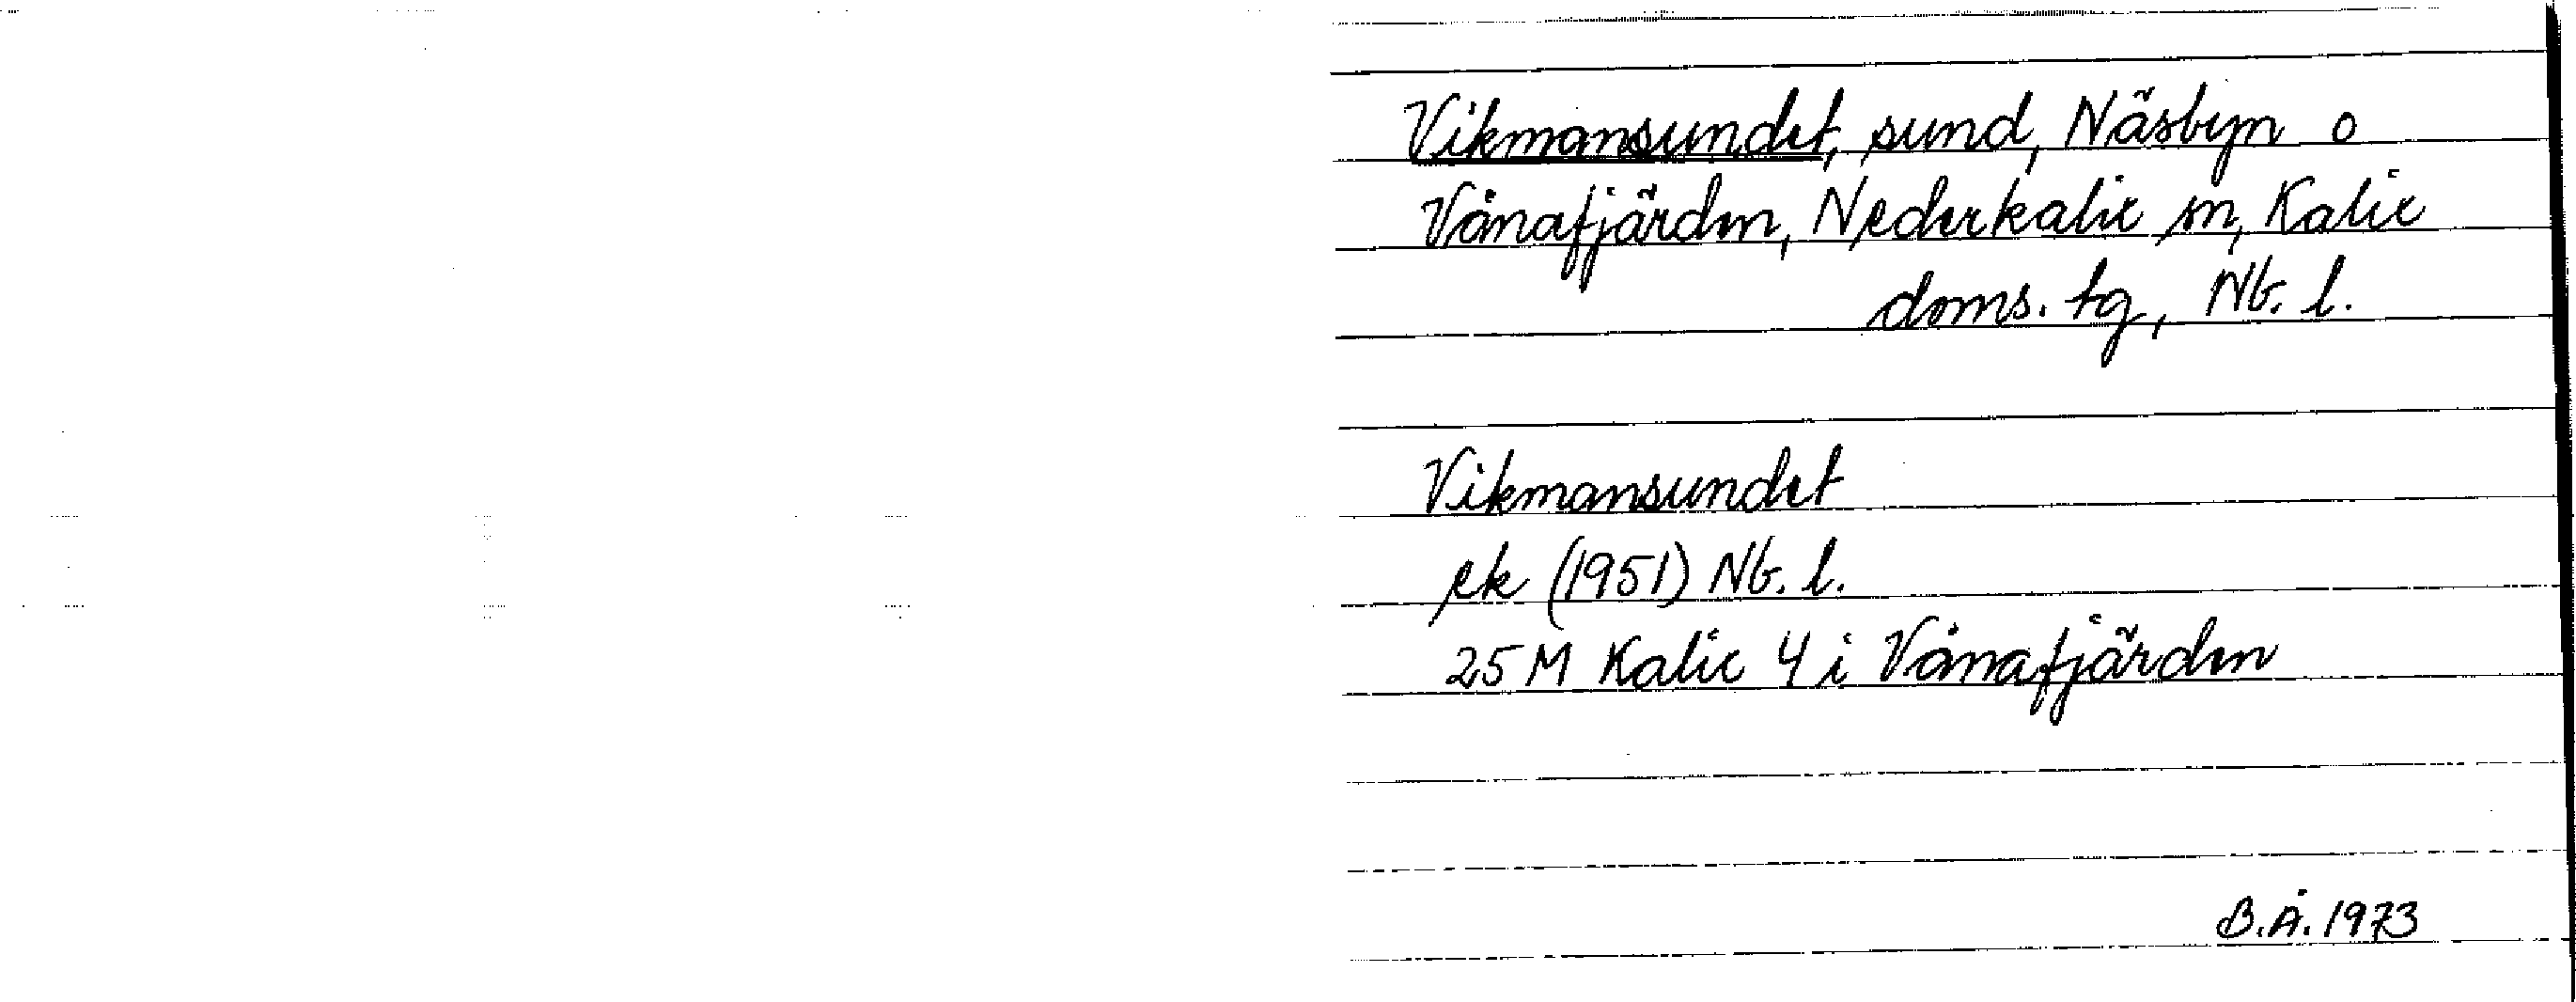 Vikmansundet, sund, Näsbyn o
Vånafjärden, Nederkalix sn, Kalix
doms. tg, Nb. l.
Vikmansundet
ek (1951) Nb. l.
25 M Kalix 4 i Vånafjärden
B.Å. 1973